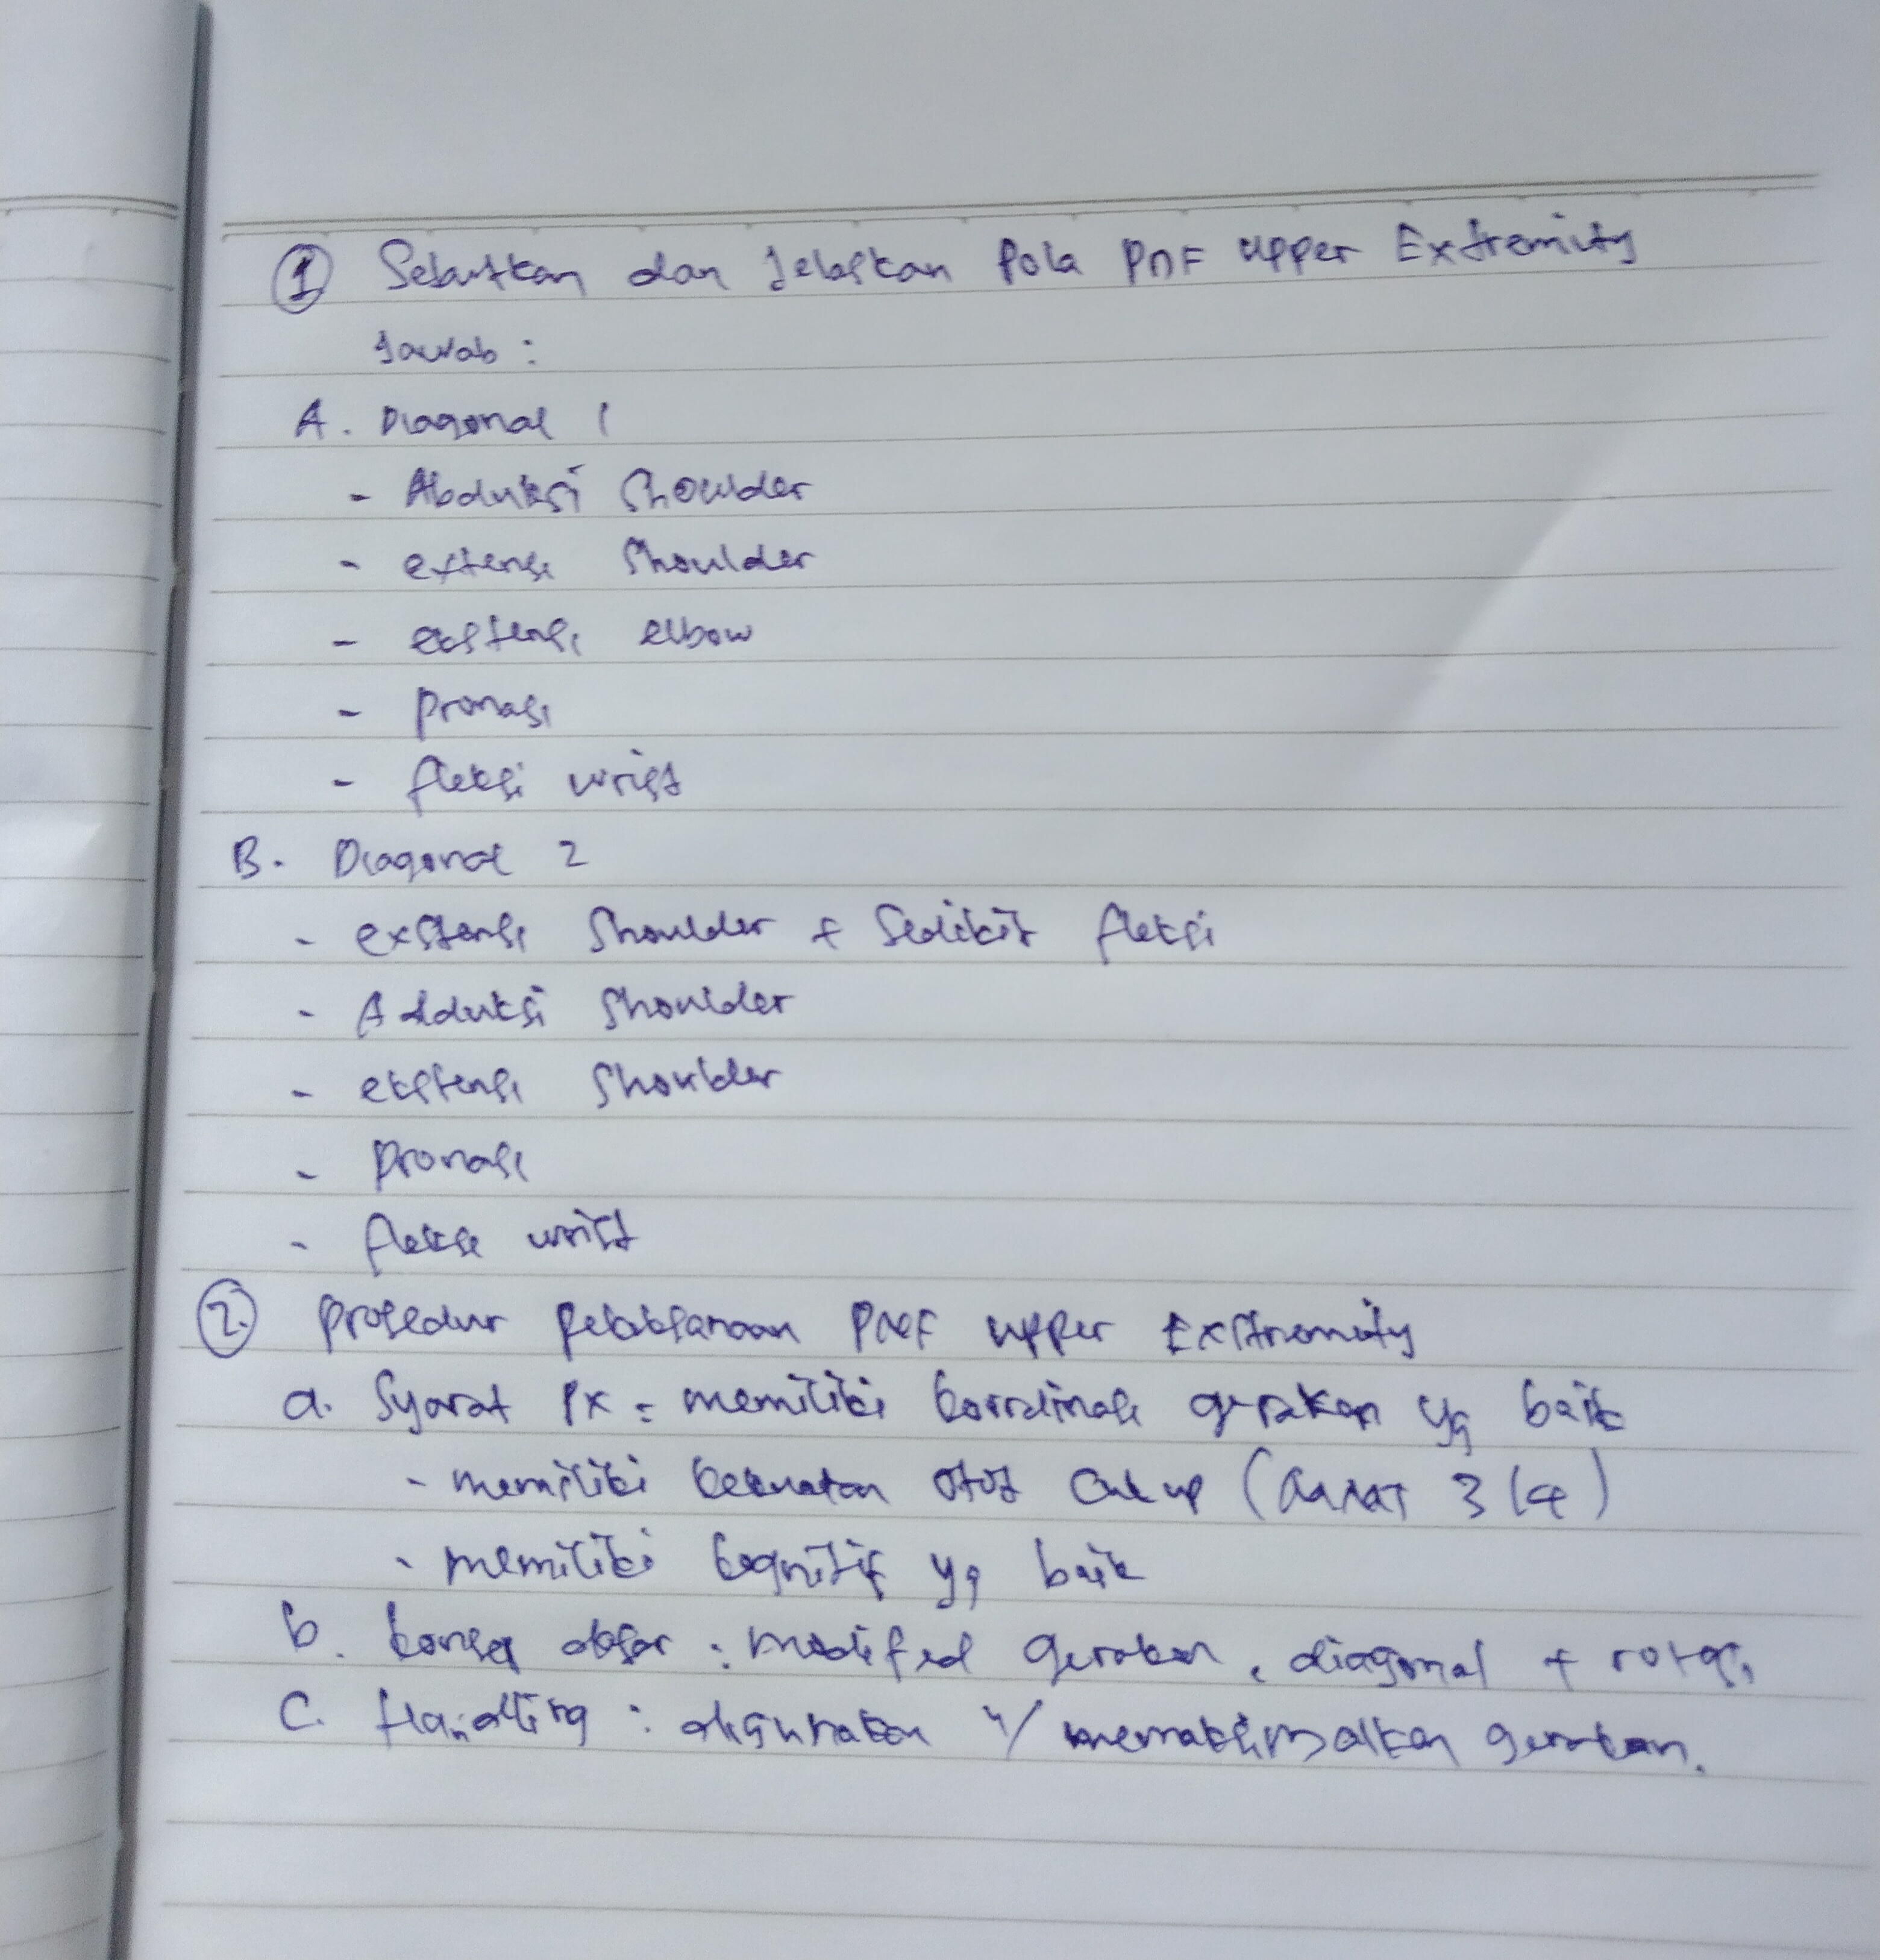 ① Sebutkan dan Jelaskan Pola PNF Upper Extremity
Jawab :
A. Diagonal 1
- Abduksi Shoulder
- extensi Shoulder
- ekstensi elbow
- pronasi
- fleksi wrist
B. Diagonal 2
- exstensi Shoulder + Sedikit fleksi
- Adduksi Shoulder
- ekstensi Shoulder
- pronasi
- fleksi wrist
2. prosedur pelaksanaan PNF upper Exstremity
a. Syarat Px = memiliki koordinasi gerakan yg baik
- memiliki kekuatan otot cukup ( 3/4)
- memiliki kognitif yg baik
b. konsep dasar : modified gerakan, diagonal + rotasi
C. Handling : digunakan u/ memaksimalkan gerakan.